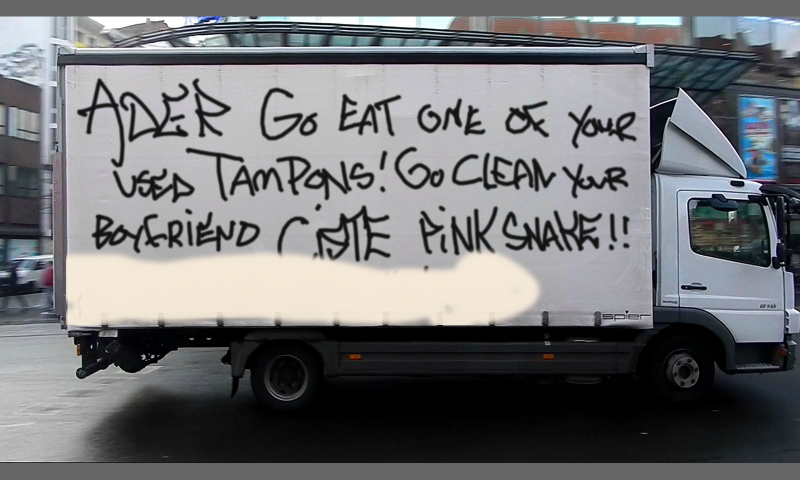 ADER GO EAT ONE OF YOUR
USED TAMPONS! GO CLEAN YOUR
BOYFRIEND PINK SNAKE!!
spier
818